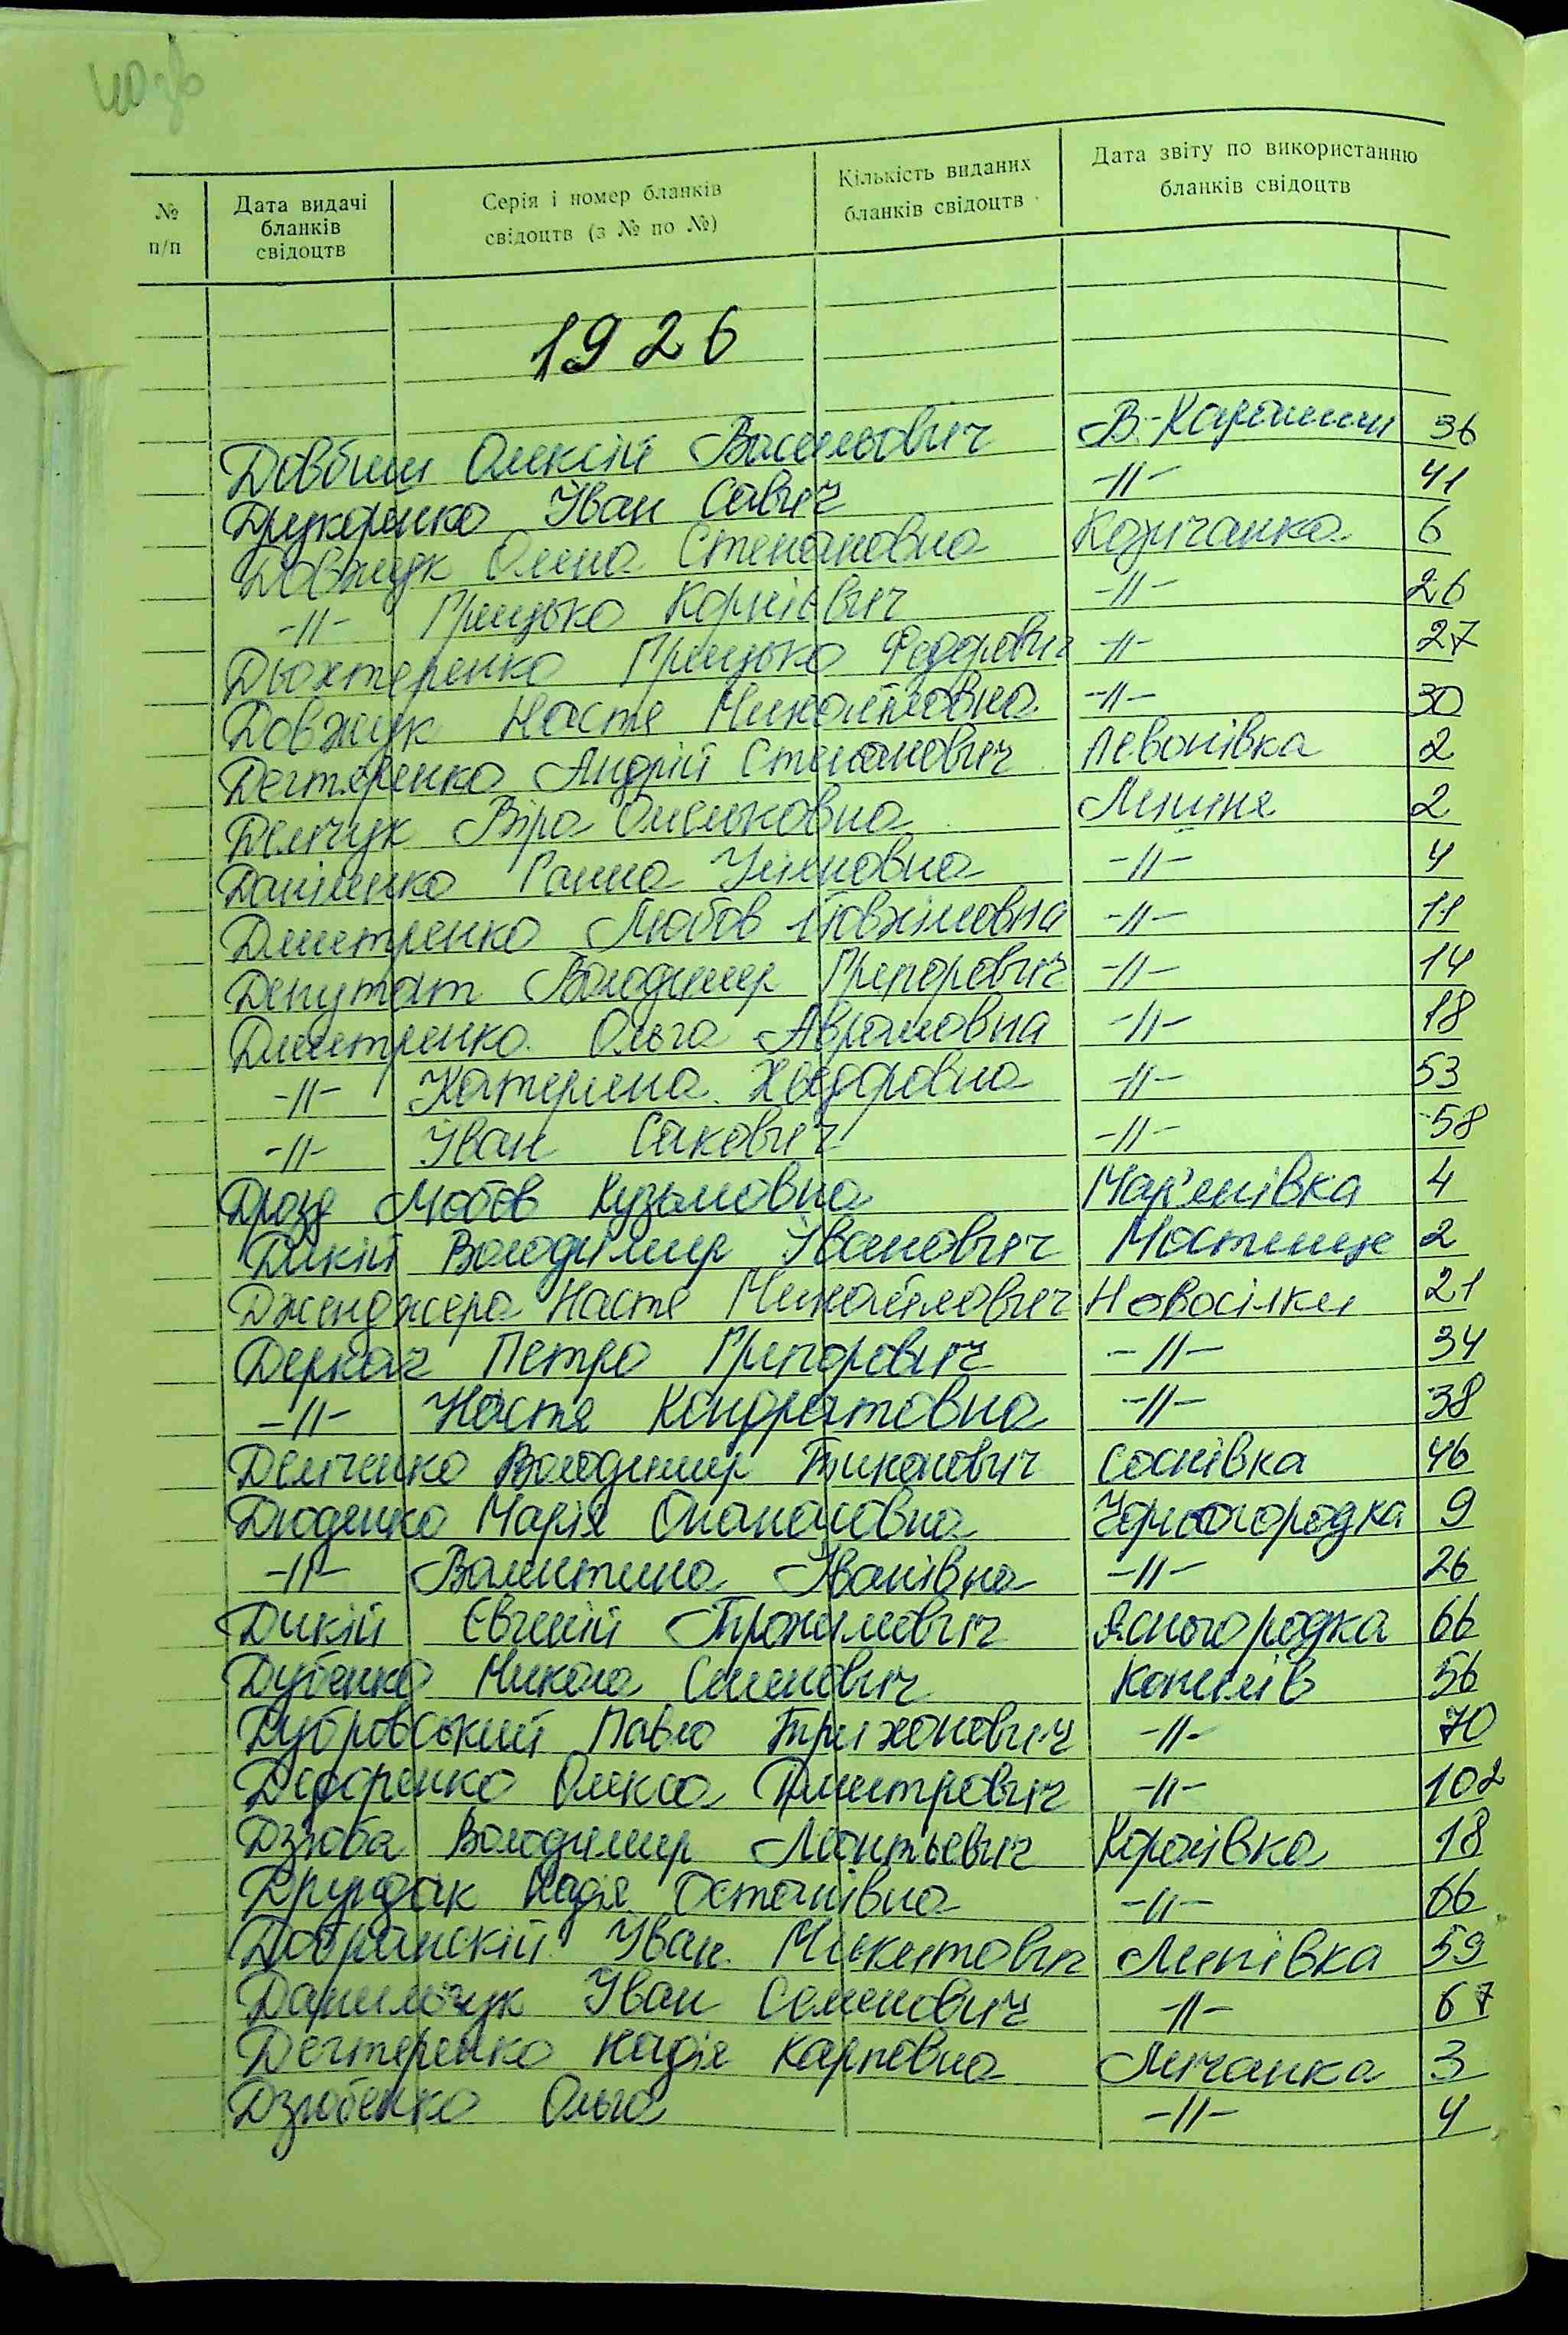 40зв
№ п/п
Дата видачі бланків свідоцтв
Серія і номер бланків свідоцтв (з № по №)
Кількість виданих бланків свідоцтв
Дата звіту по використанню бланків свідоцтв
1926
Довбиш Олексій Васильович В.-Карашин 36
Друкаренко Іван Савич -//- 41
Довжук Олена Степановна Кожчанка 6
-//- Грицько Корнієвич -//- 26
Дьохтеренко Грицько Федорович -//- 27
Довжук Настя Михайловна -//- 30
Дегтяренко Андрій Степанович Левонівка 2
Демчук Віра Олельковна Лишня 2
Даніленко Ганна Уляновна -//- 4
Дмитренко Любов Йовхімовна -//- 11
Депутат Володимир Григорович -//- 14
Дмитренко Ольга Аврамовна -//- 18
-//- Катерина Хведоровна -//- 53
-//- Іван Сакович -//- 58
Дрозд Любов Кузьмовна Мар'янівка 4
Дикій Володимир Іванович Мостище 2
Дженджера Настя Михайлович Новосілки 21
Деркач Петро Григорович -//- 34
-//- Настя Кондратовна -//- 38
Демченко Володимир Тихонович Соснівка 46
Дюденко Марія Опанасовна Чорногородка 9
-//- Валентина Іванівна -//- 26
Дикій Євгеній Трохимович Ясногородка 66
Дубенко Микола Семенович Копилів 56
Дубровський Павло Трихонович -//- 70
Дегтяренко Олекса Дмитрович -//- 102
Дзюба Володимир Леонтьевич Королівка 18
Друздак Надія Остапівна -//- 66
Добранскій Іван Микитович Липівка 59
Данильчук Іван Семенович -//- 67
Дегтеренко Надія Карповна Лычанка 3
Дзюбенко Ольга -//- 4